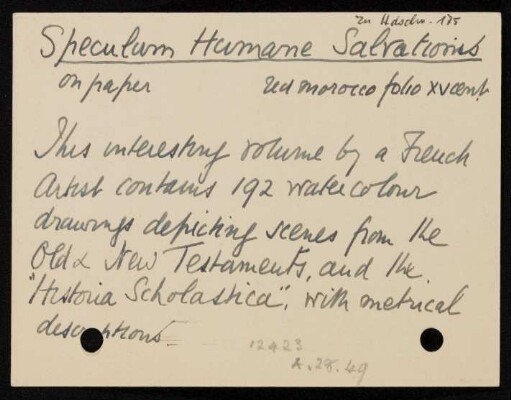 zu Hdschr. 175
Speculum Humane Salvationis
on paper red morocco folio XVcent.
This interesting volume by a French
Artist contains 192 watercolour
drawings depicting scenes from the
Old & New Testaments, and the
"Historia Scholastica", with metrical
descriptions.
12423
A.28.49